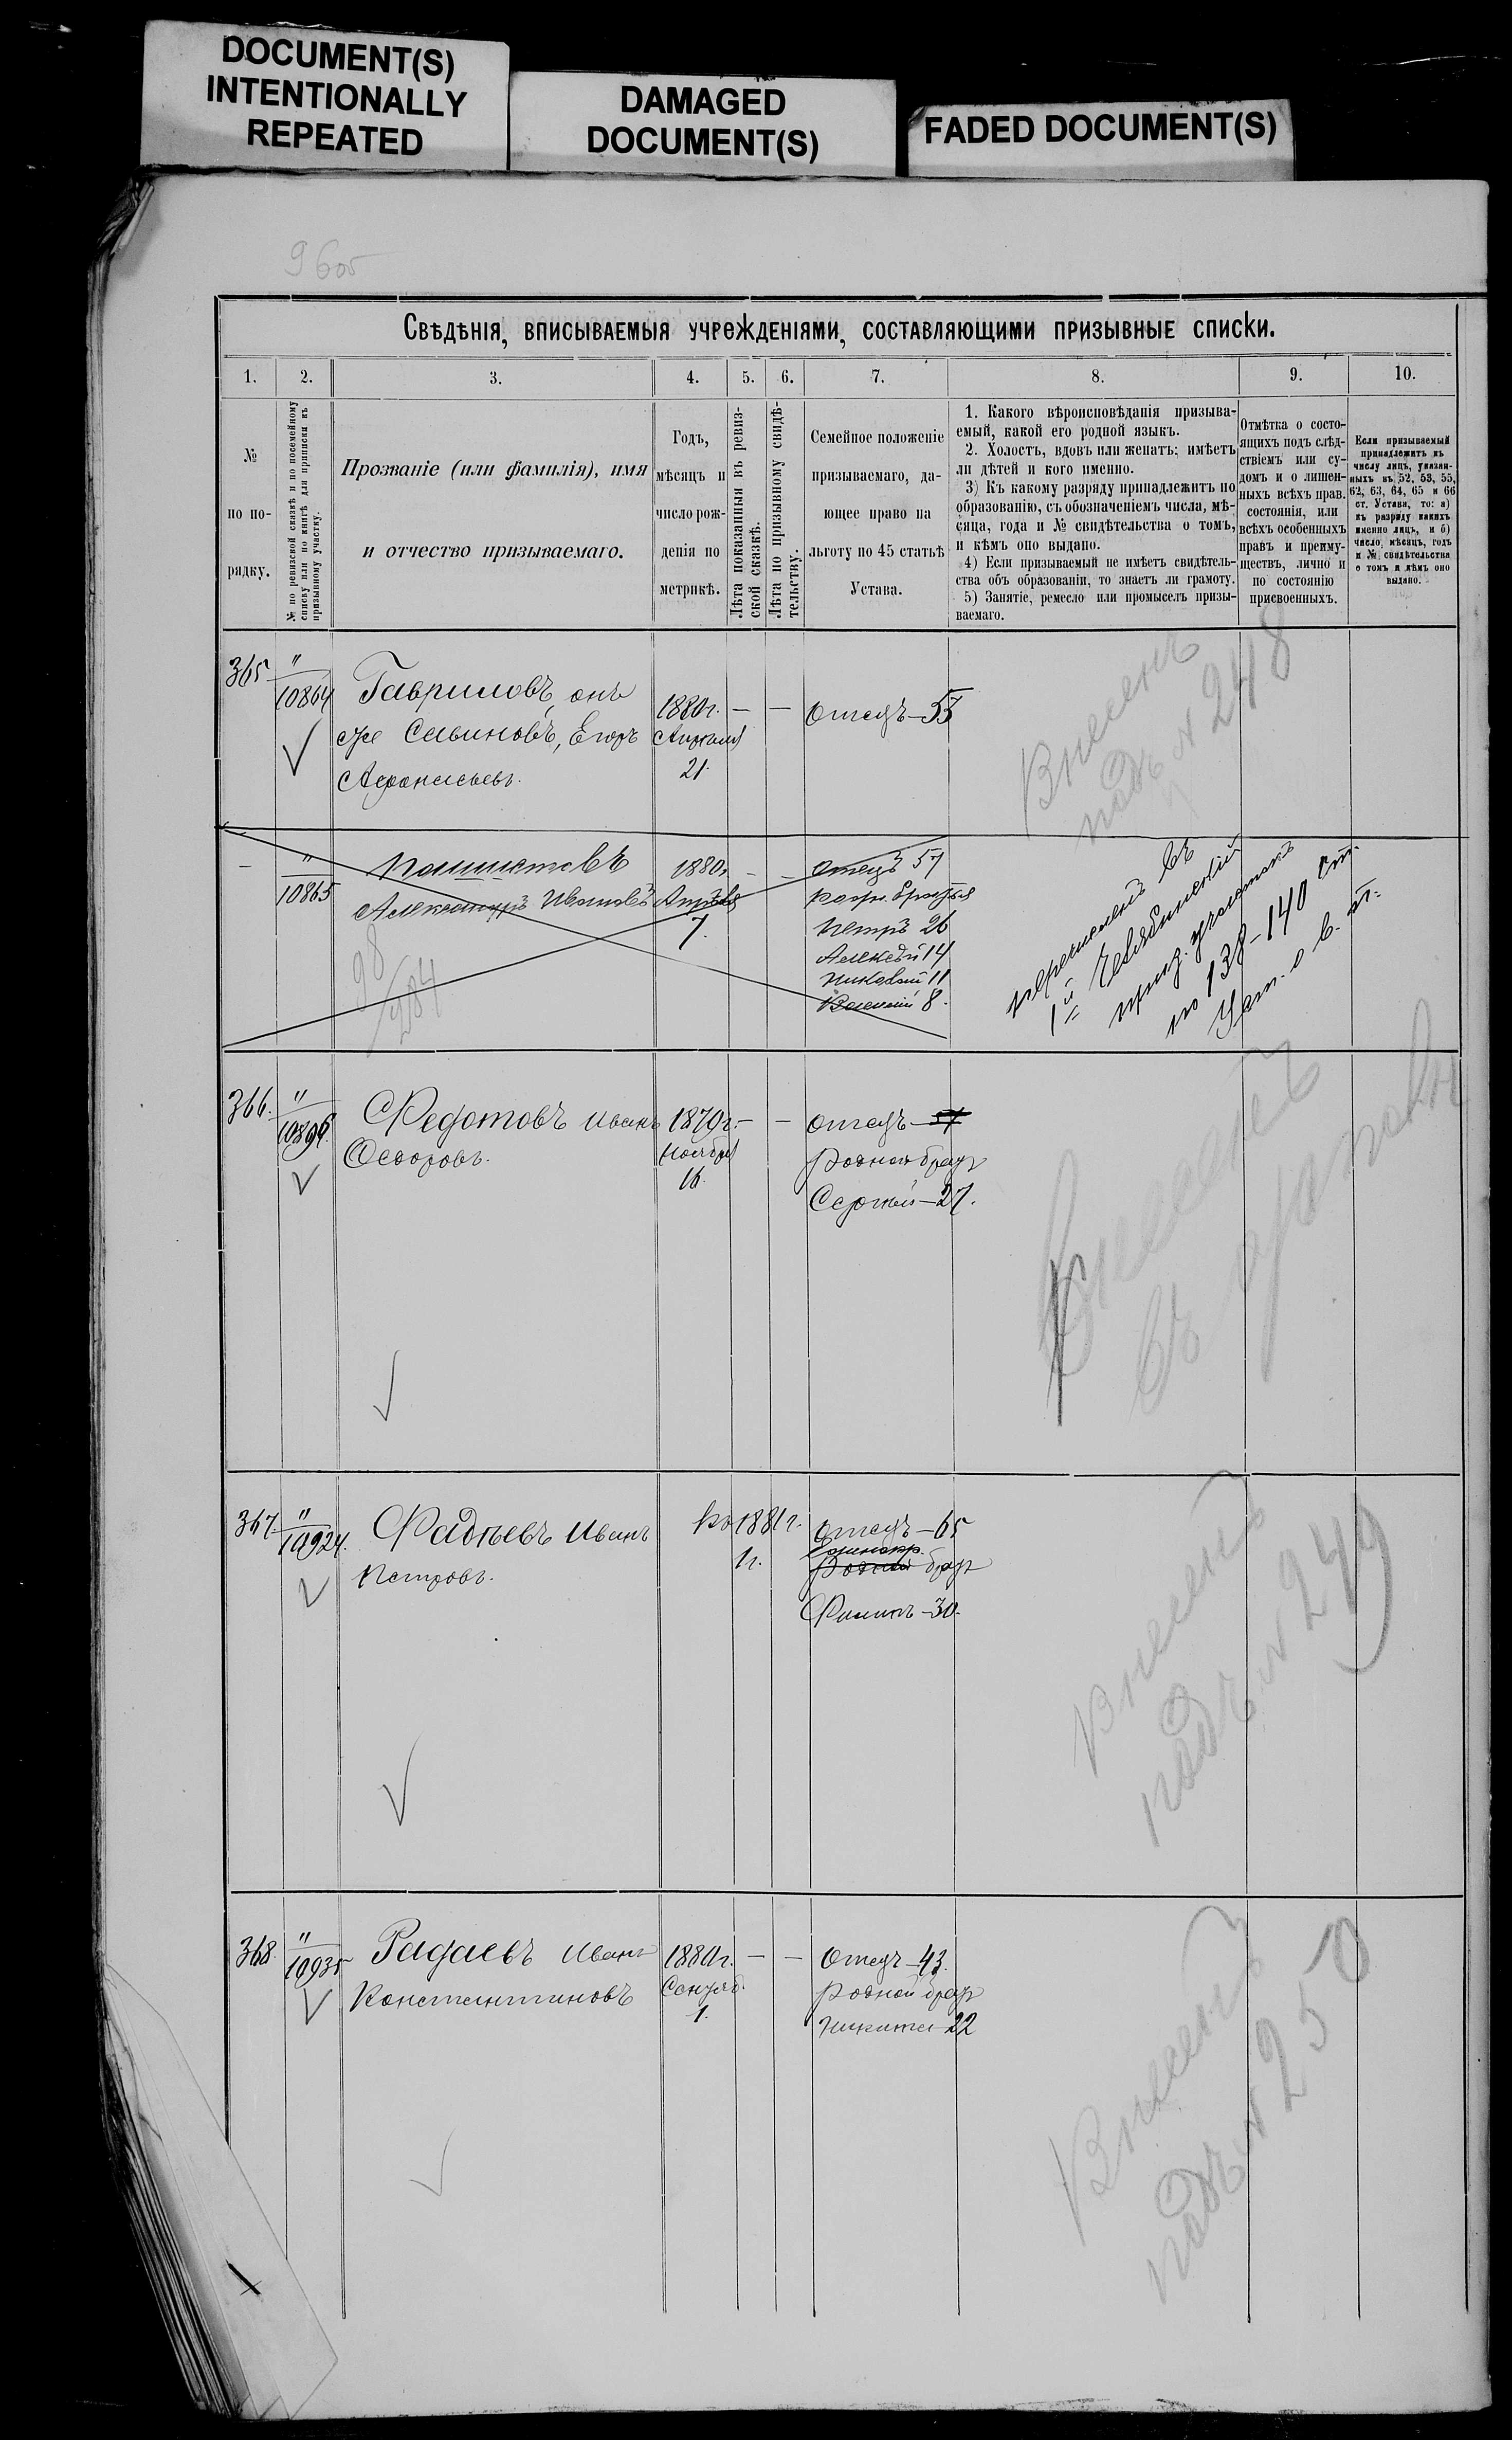 DOCUMENT(S)
INTENTIONALLY
REPEATED
DAMAGED
DOCUMENT(S)
FADED DOCUMENT(S)
9605
Свѣдѣнія, вписываемыя учрежденіями, составляющими призывные списки.
1. 2. 3. 4. 5. 6. 7. 8. 9. 10.
№
по по-
рядку.
№ по ревизской сказкѣ и по посемейному
списку или по книгѣ для приписки къ
призывному участку.
Прозваніе (или фамилія), имя
и отчество призываемаго.
Годъ,
мѣсяцъ и
число рож-
денія по
метрикѣ.
Лѣта показанныя въ ревиз-
ской сказкѣ.
Лѣта по призывному свидѣ-
тельству.
Семейное положеніе
призываемаго, да-
ющее право на
льготу по 45 статьѣ
Устава.
1. Какого вѣроисповѣданія призыва-
емый, какой его родной языкъ.
2. Холостъ, вдовъ или женатъ; имѣетъ
ли дѣтей и кого именно.
3) Къ какому разряду принадлежитъ по
образованію, съ обозначеніемъ числа, мѣ-
сяца, года и № свидѣтельства о томъ,
и кѣмъ оно выдано.
4) Если призываемый не имѣетъ свидѣтель-
ства объ образованіи, то знаетъ ли грамоту.
5) Занятіе, ремесло или промыселъ призы-
ваемаго.
Отмѣтка о состо-
ящихъ подъ слѣд-
ствіемъ или су-
домъ и о лишен-
ныхъ всѣхъ прав.
состоянія, или
всѣхъ особенныхъ
правъ и преиму-
ществъ, лично и
по состоянію
присвоенныхъ.
Если призываемый
принадлежитъ къ
числу лицъ, указан-
ныхъ въ 52, 53, 55,
62, 63, 64, 65 и 66
ст. Устава, то: а)
къ разряду какихъ
именно лицъ, и б)
число, мѣсяцъ, годъ
и № свидѣтельства
о томъ и кѣмъ оно
выдано.
365 "
10864
Гавриловъ, онъ
же Савиновъ, Егоръ
Афонасьевъ.
1880г.
Апрѣля
21.
— —
Отецъ—55
Внесенъ
подъ № 248
— "
10865
Александръ Ивановъ
98
284
1880г.
Апрѣля
7.
— —
Отецъ 57
родн. братья
Петръ 26
Алексѣй 14
Николай 11
Василій 8.
перечисленъ въ
1й Челябинскій
призд. участокъ
по 138-140 ст.
Уст. о в. п.
366. "
Федотовъ Иванъ
Ѳедоровъ.
1879г.
Ноября
16.
— —
Отецъ—57
Родной братъ
Сергѣй—27.
Внесенъ
въ
367. "
10924.
Фадѣевъ Иванъ
Петровъ.
Къ 1881г.
1г.
Отецъ—65
Единокр.
Родной братъ
Филипъ—30.
Внесенъ
подъ № 249
368. "
10935
Радаевъ Иванъ
Константиновъ
1880г.
Сентяб.
1.
— —
Отецъ—43.
Родной братъ
Никита—22
Внесенъ
подъ № 250